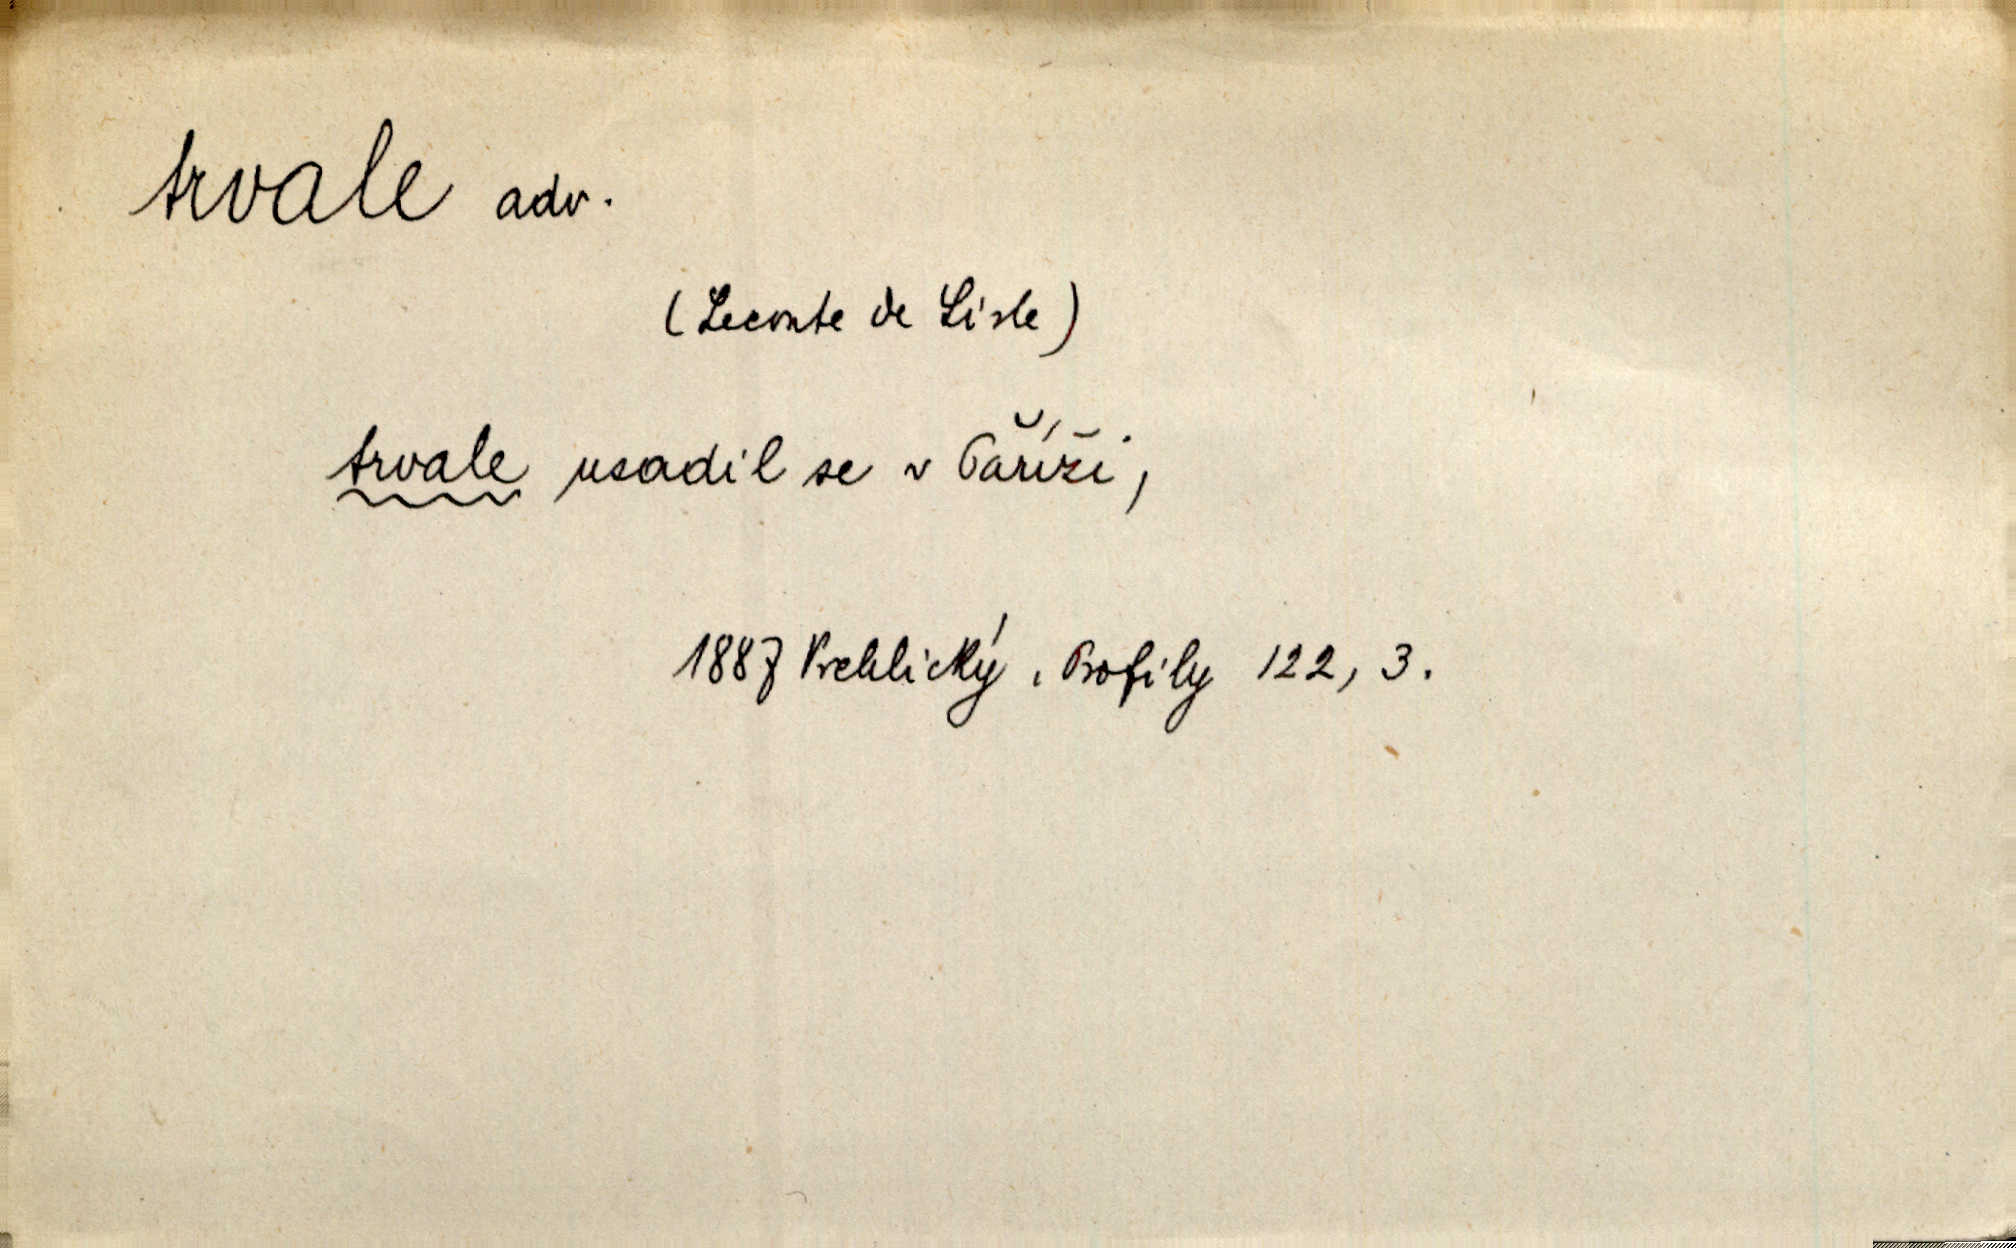 trvale adv.
(Leconte de Lisle)
trvale usadil se v Paříži,
1887 Vrchlický, Profily 122, 3.